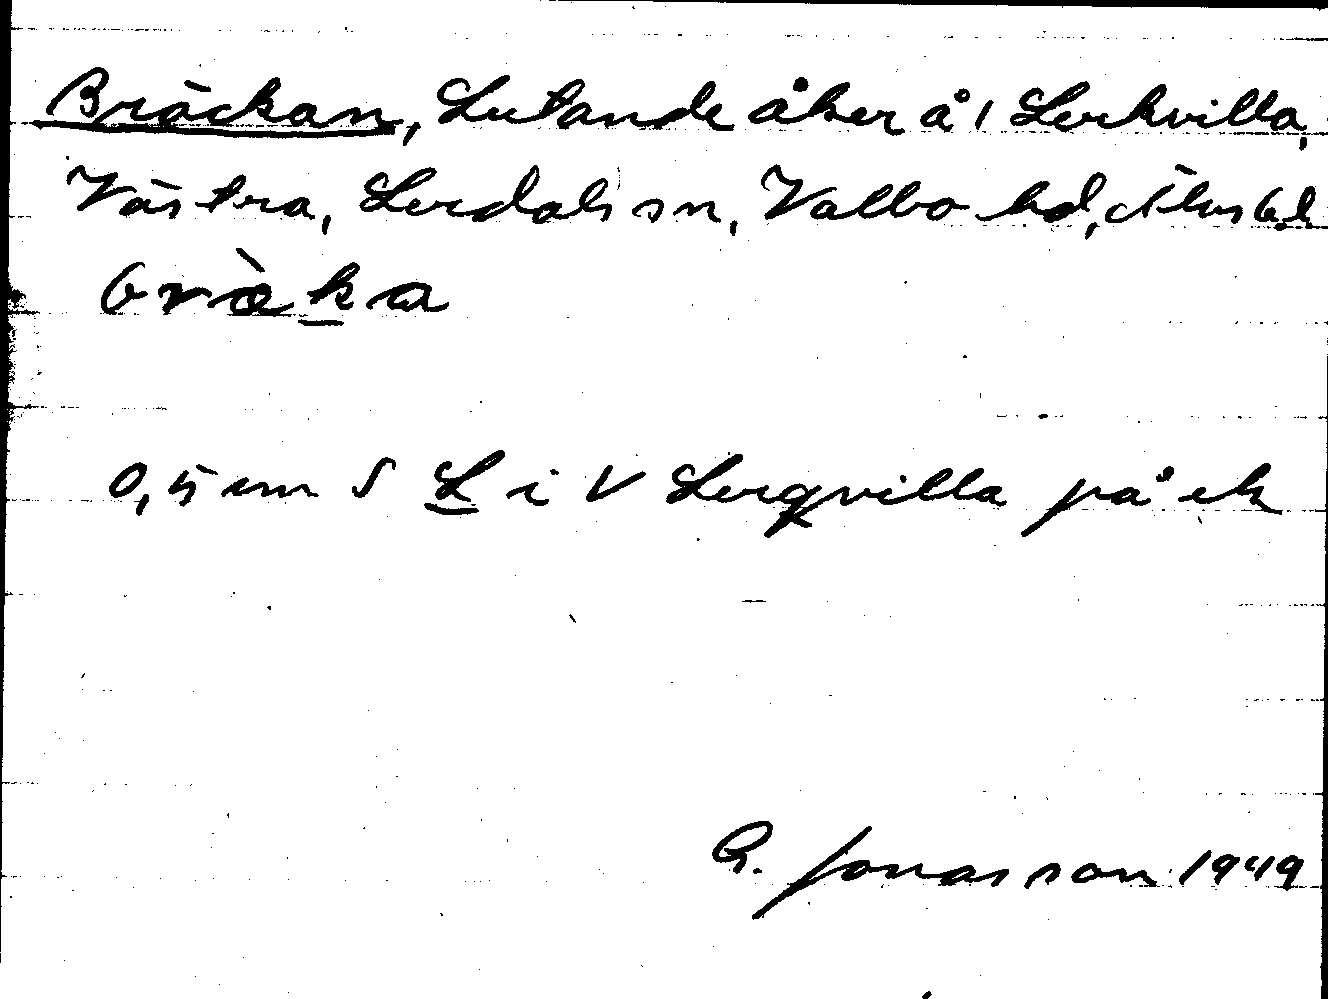 Bräckan, Lutande åker å 1 Lerkvilla,
Västra, Lerdals sn, Valbo hd, Älvsb.l.
bràka
0,5 cm S L i V Lerqvilla på ek
G. Jonasson 1949